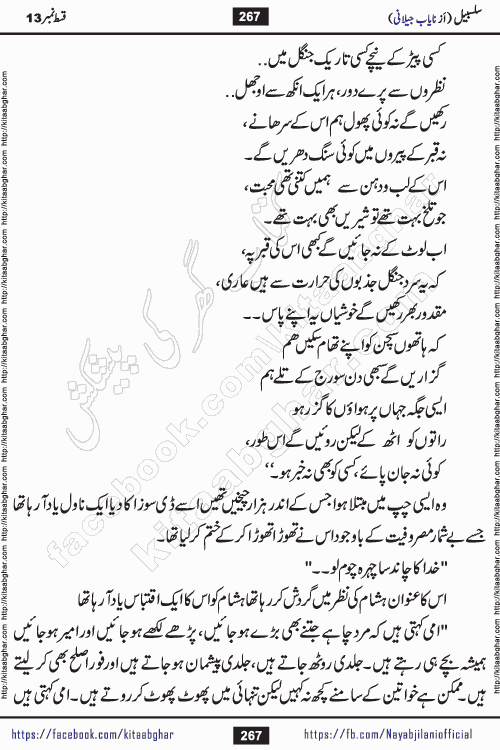 سلسبیل (از نایاب جیلانی)
267
قسط نمبر 13
کسی پیڑ کے نیچے کسی تاریک جنگل میں..
نظروں سے پرے دور، ہر ایک انکھ سے اوجھل..
رکھیں گے نہ کوئی پھول ہم اس کے سرھانے،
نہ قبر کے پیروں میں کوئی سنگ دھریں گے۔
اس کے لب و دہن سے ہمیں کتنی تھی محبت،
جو تلخ بہت تھے تو شیریں بھی بہت تھے۔
اب لوٹ کے نہ جائیں گے کبھی اس کی قبر پہ،
کہ یہ سرد جنگل جذبوں کی حرارت سے ہیں عاری،
مقدور بھر رکھیں گے خوشیاں یہ اپنے پاس۔۔
کہ ہاتھوں سچن کو اپنے تھام سکیں ھم
گزاریں گے سبھی دن سورج کے تلے ہم
ایسی جگہ جہاں پر ہواؤں کا گزر ہو
راتوں کو اٹھ کے لیکن روئیں گے اس طور،
کوئی نہ جان پائے، کسی کو بھی نہ خبر ہو۔‘‘
وہ ایسی چپ میں مبتلا ہوا جس کے اندر ہزار چیخیں تھیں اسے ڈی سوزا کا دیا ایک ناول یاد آ رہا تھا
جسے بے شمار مصروفیت کے باوجود اس نے تھوڑا تھوڑا کر کے ختم کر لیا تھا۔
"خدا کا چاند سا چہرہ چوم لو۔۔"
اس کا عنوان ہشام کی نظر میں گردش کر رہا تھا ہشام کو اس کا ایک اقتباس یاد آ رہا تھا
"امی کہتی ہیں کہ مرد چاہے جتنے بھی بڑے ہو جائیں، پڑھے لکھے ہو جائیں اور امیر ہو جائیں
ہمیشہ بچے ہی رہتے ہیں۔ جلدی روٹھ جاتے ہیں، جلدی پیشمان ہو جاتے ہیں اور فوراً صلح بھی کر لیتے
ہیں۔ ممکن ہے خواتین کے سامنے کچھ نہ کہیں لیکن تنہائی میں پھوٹ پھوٹ کر روتے ہیں۔ امی کہتی ہیں
https://facebook.com/kitaabghar
267
https://fb.com/Nayabjilaniofficial
http://kitaabghar.com http://kitaabghar.com http://kitaabghar.com http://kitaabghar.com http://kitaabghar.com
کتاب گھر کی پیشکش
facebook.com/kitaabghar
kitaabghar.com